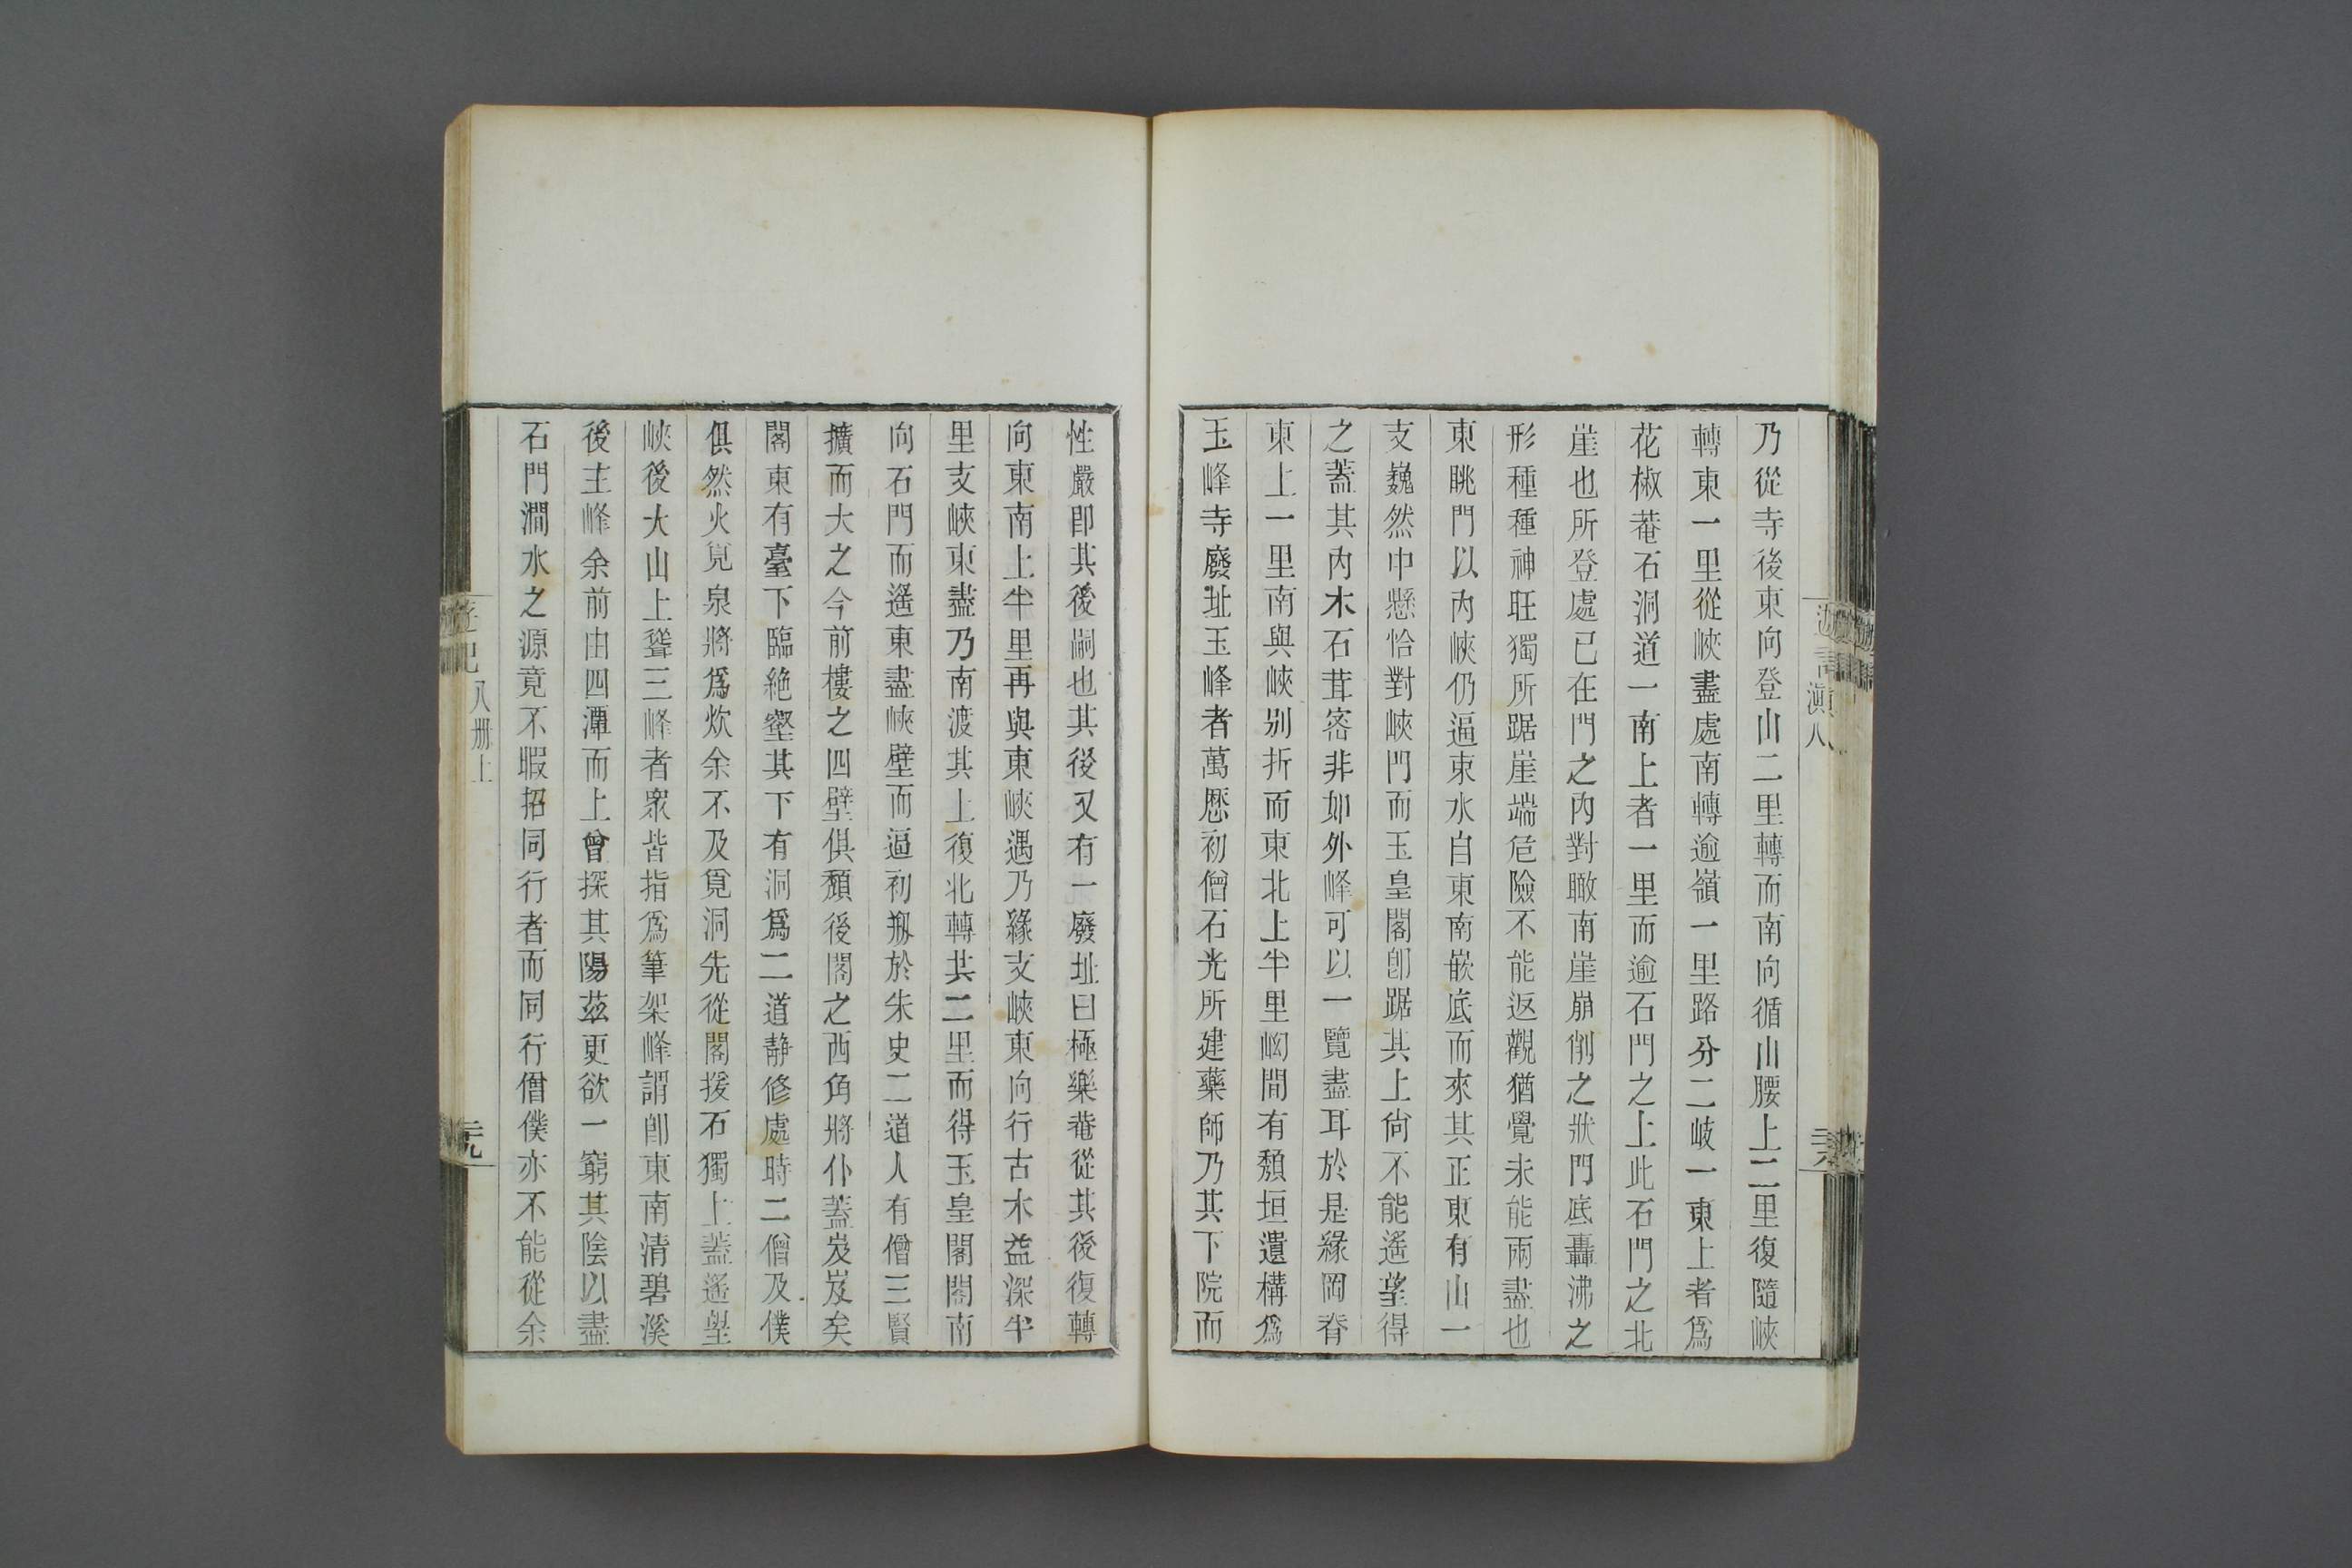 乃從寺後東向登山二里轉而南向循山腰上二里復隨峽
轉東一里從峽盡處南轉逾嶺一里路分二岐一東上者爲
花椒菴石洞道一南上者一里而逾石門之上此石門之北
崖也所登處已在門之內對瞰南崖崩削之狀門底轟沸之
形種種神旺獨所踞崖端危險不能返觀猶覺未能兩盡也
東眺門以內峽仍逼束水自東南嵌底而來其正東有山一
支巍然中懸恰對峽門而玉皇閣卽踞其上尙不能遙望得
之蓋其內木石茸密非如外峰可以一覽盡耳於是緣岡脊
東上一里南與峽別折而東北上半里岰間有頹垣遺構爲
玉峰寺廢址玉峰者萬厯初僧石光所建藥師乃其下院而
性嚴卽其後嗣也其後又有一廢址曰極樂菴從其後復轉
向東南上半里再與東峽遇乃緣支峽東向行古木益深半
里支峽東盡乃南渡其上復北轉共二里而得玉皇閣閣南
向石門而遙東盡峽壁而逼初刱於朱史二道人有僧三賢
擴而大之今前樓之四壁俱頹後閣之西角將仆蓋岌岌矣
閣東有臺下臨絶壑其下有洞爲二道靜修處時二僧及僕
俱然火覓泉將爲炊余不及覓洞先從閣援石獨上蓋遙望
峽後大山上聳三峰者眾皆指爲筆架峰謂卽東南清碧溪
後主峰余前由四潭而上曾探其陽茲更欲一窮其陰以盡
石門澗水之源竟不暇招同行者而同行僧僕亦不能從余